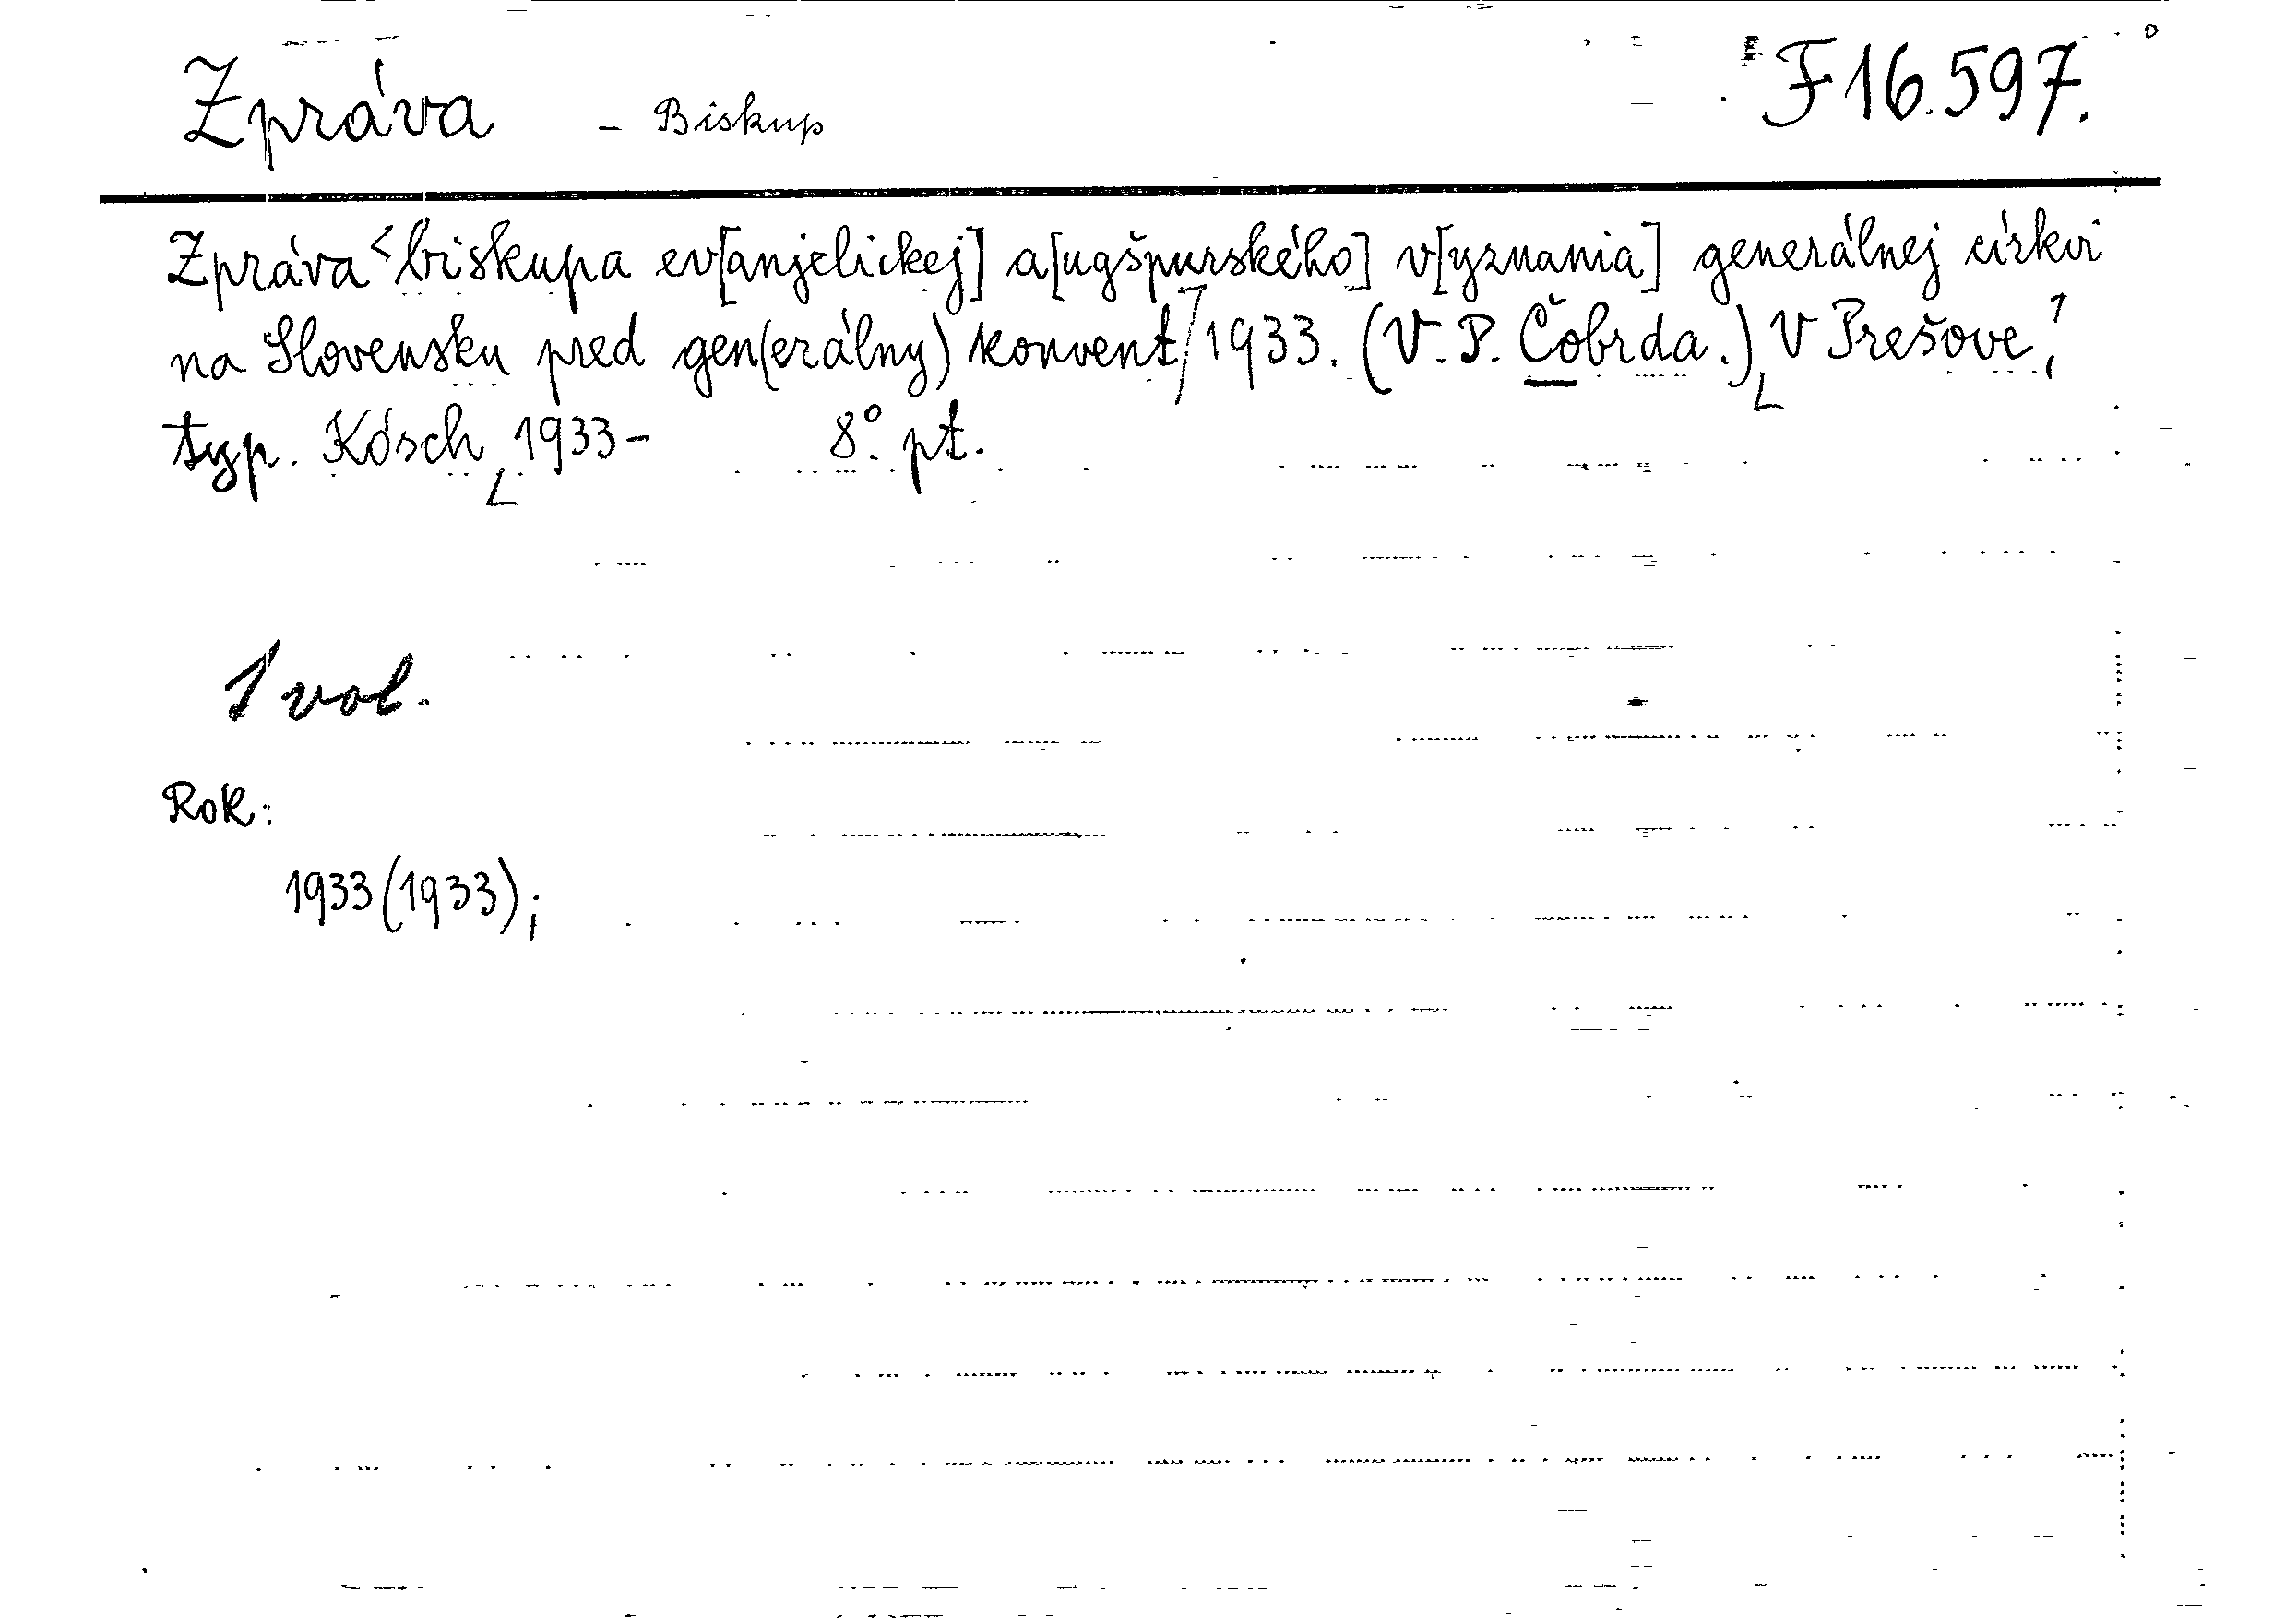 Zpráva - Biskup F 16.597.
Zpráva <biskupa ev[anjelickej] a[ugšpurského] v[yznania] generálnej cirkvi
na Slovensku pred gen(erálny) konvent/1933. (V. P. Čobrda.) V Prešove,
typ. Kósch, 1933- 8°. pt.
1 vol.
Rok:
1933(1933);